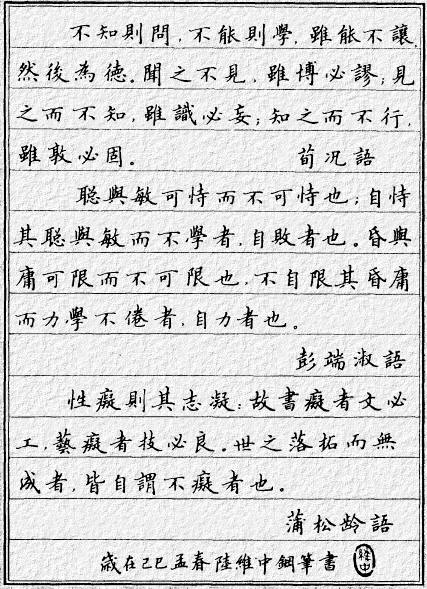 不知則問，不能則學，雖能不讓，
然後為德。聞之不見，雖博必謬；見
之而不知，雖識必妄；知之而不行，
雖敦必困。　荀況語
聰與敏可恃而不可恃也；自恃
其聰與敏而不學者，自敗者也。昏與
庸可限而不可限也，不自限其昏庸
而力學不倦者，自力者也。
彭端淑語
性癡則其志凝：故書癡者文必
工，藝癡者技必良。世之落拓而無
成者，皆自謂不癡者也。
蒲松龄語
歲在己巳孟春陸維中鋼筆書 維中